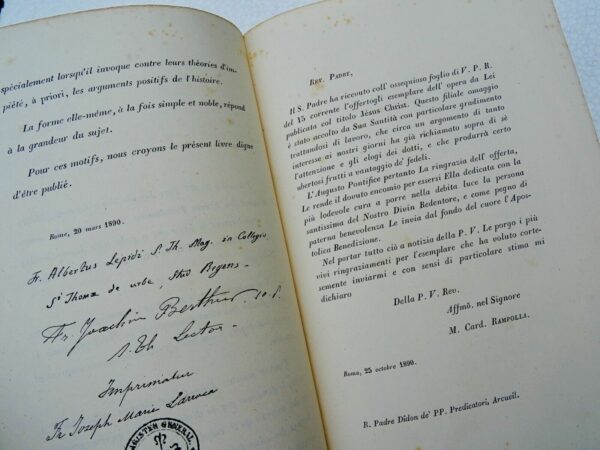 spécialement lorsqu'il invoque contre leurs théories d'im-
piété, à priori, les arguments positifs de l'histoire.
La forme elle-même, à la fois simple et noble, répond
à la grandeur du sujet.
Pour ces motifs, nous croyons le présent livre digne
d'être publié.
Rome, 20 mars 1890.
Fr. Albertus Lepidi S. Th. Mag. in Collegio
Sti Thomæ de urbe, Stud. Regens
Fr. Joachim Berthier, o. p.
S. Th. Lector
Imprimatur
Fr. Joseph Marie Larroca
MAGISTER GENERAL.
REV. PADRE,
Il S. Padre ha ricevuto coll' ossequioso foglio di V. P. R.
del 15 corrente l'offertogli esemplare dell' opera da Lei
publicata col titolo Jésus Christ. Questo filiale omaggio
è stato accolto da Sua Santità con particolare gradimento
trattandosi di lavoro, che circa un argomento di tanto
interesse ai nostri giorni ha già richiamato sopra di sè
l'attenzione e gli elogi dei dotti, e che produrrà certo
ubertosi frutti a vantaggio de' fedeli.
L'Augusto Pontifice pertanto La ringrazia dell' offerta,
Le rende il dovuto encomio per essersi Ella dedicata con la
più lodevole cura a porre nella debita luce la persona
santissima del Nostro Divin Redentore, e come pegno di
paterna benevolenza Le invia dal fondo del cuore l'Apos-
tolica Benedizione.
Nel portar tutto ciò a notizia della P. V. Le porgo i più
vivi ringraziamenti per l'esemplare che ha voluto corte-
semente inviarmi e con sensi di particolare stima mi
dichiaro
Della P. V. REV.
Affmō. nel Signore
M. Card. RAMPOLLA.
Rome, 25 octobre 1890.
R. Padre Didon de' PP. Predicatori, Arcueil.